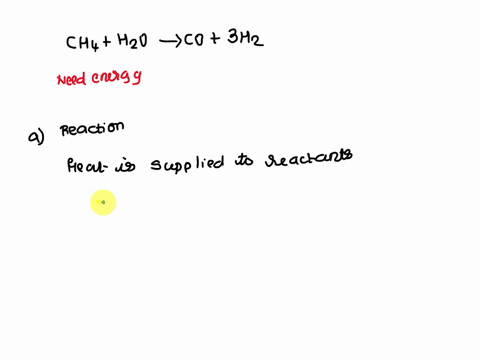 CH4 + H2O → CO + 3H2
Need energy
a) Reaction
Heat is supplied to reactants